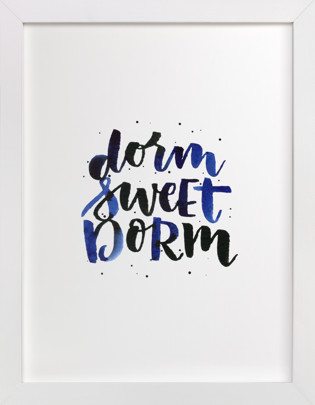 dorm
sweet
DoRm